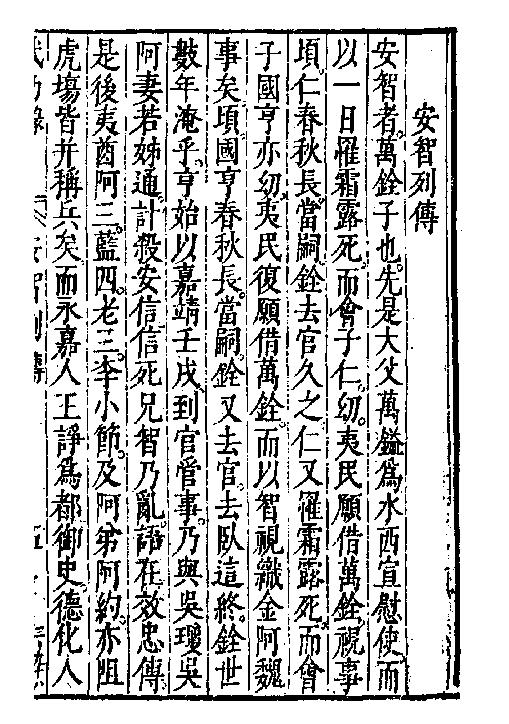 安智列傳
安智者。萬銓子也。先是大父萬鎰爲水西宣慰使。而
以一日罹霜露死。而曾子仁。幼。夷民願借萬銓。視事
頃。仁春秋長。當嗣。銓去官久之。仁又罹霜露死。而曾
子國亨亦幼。夷民復願借萬銓。而以智視織金阿魏
事矣。頃國亨春秋長。當嗣。銓又去官。去臥這終。銓世
數年淹乎。亨始以嘉靖壬戌。到官管事。乃與吳瓊吳
阿妻若姊通。計殺安信。信死。兄智乃亂。語在效忠傳。
是後夷酋阿三。藍四。老三。李小節。及阿弟阿約。亦阻
虎塲皆幷稱兵矣。而永嘉人王諍爲都御史。德化人
安智列傳